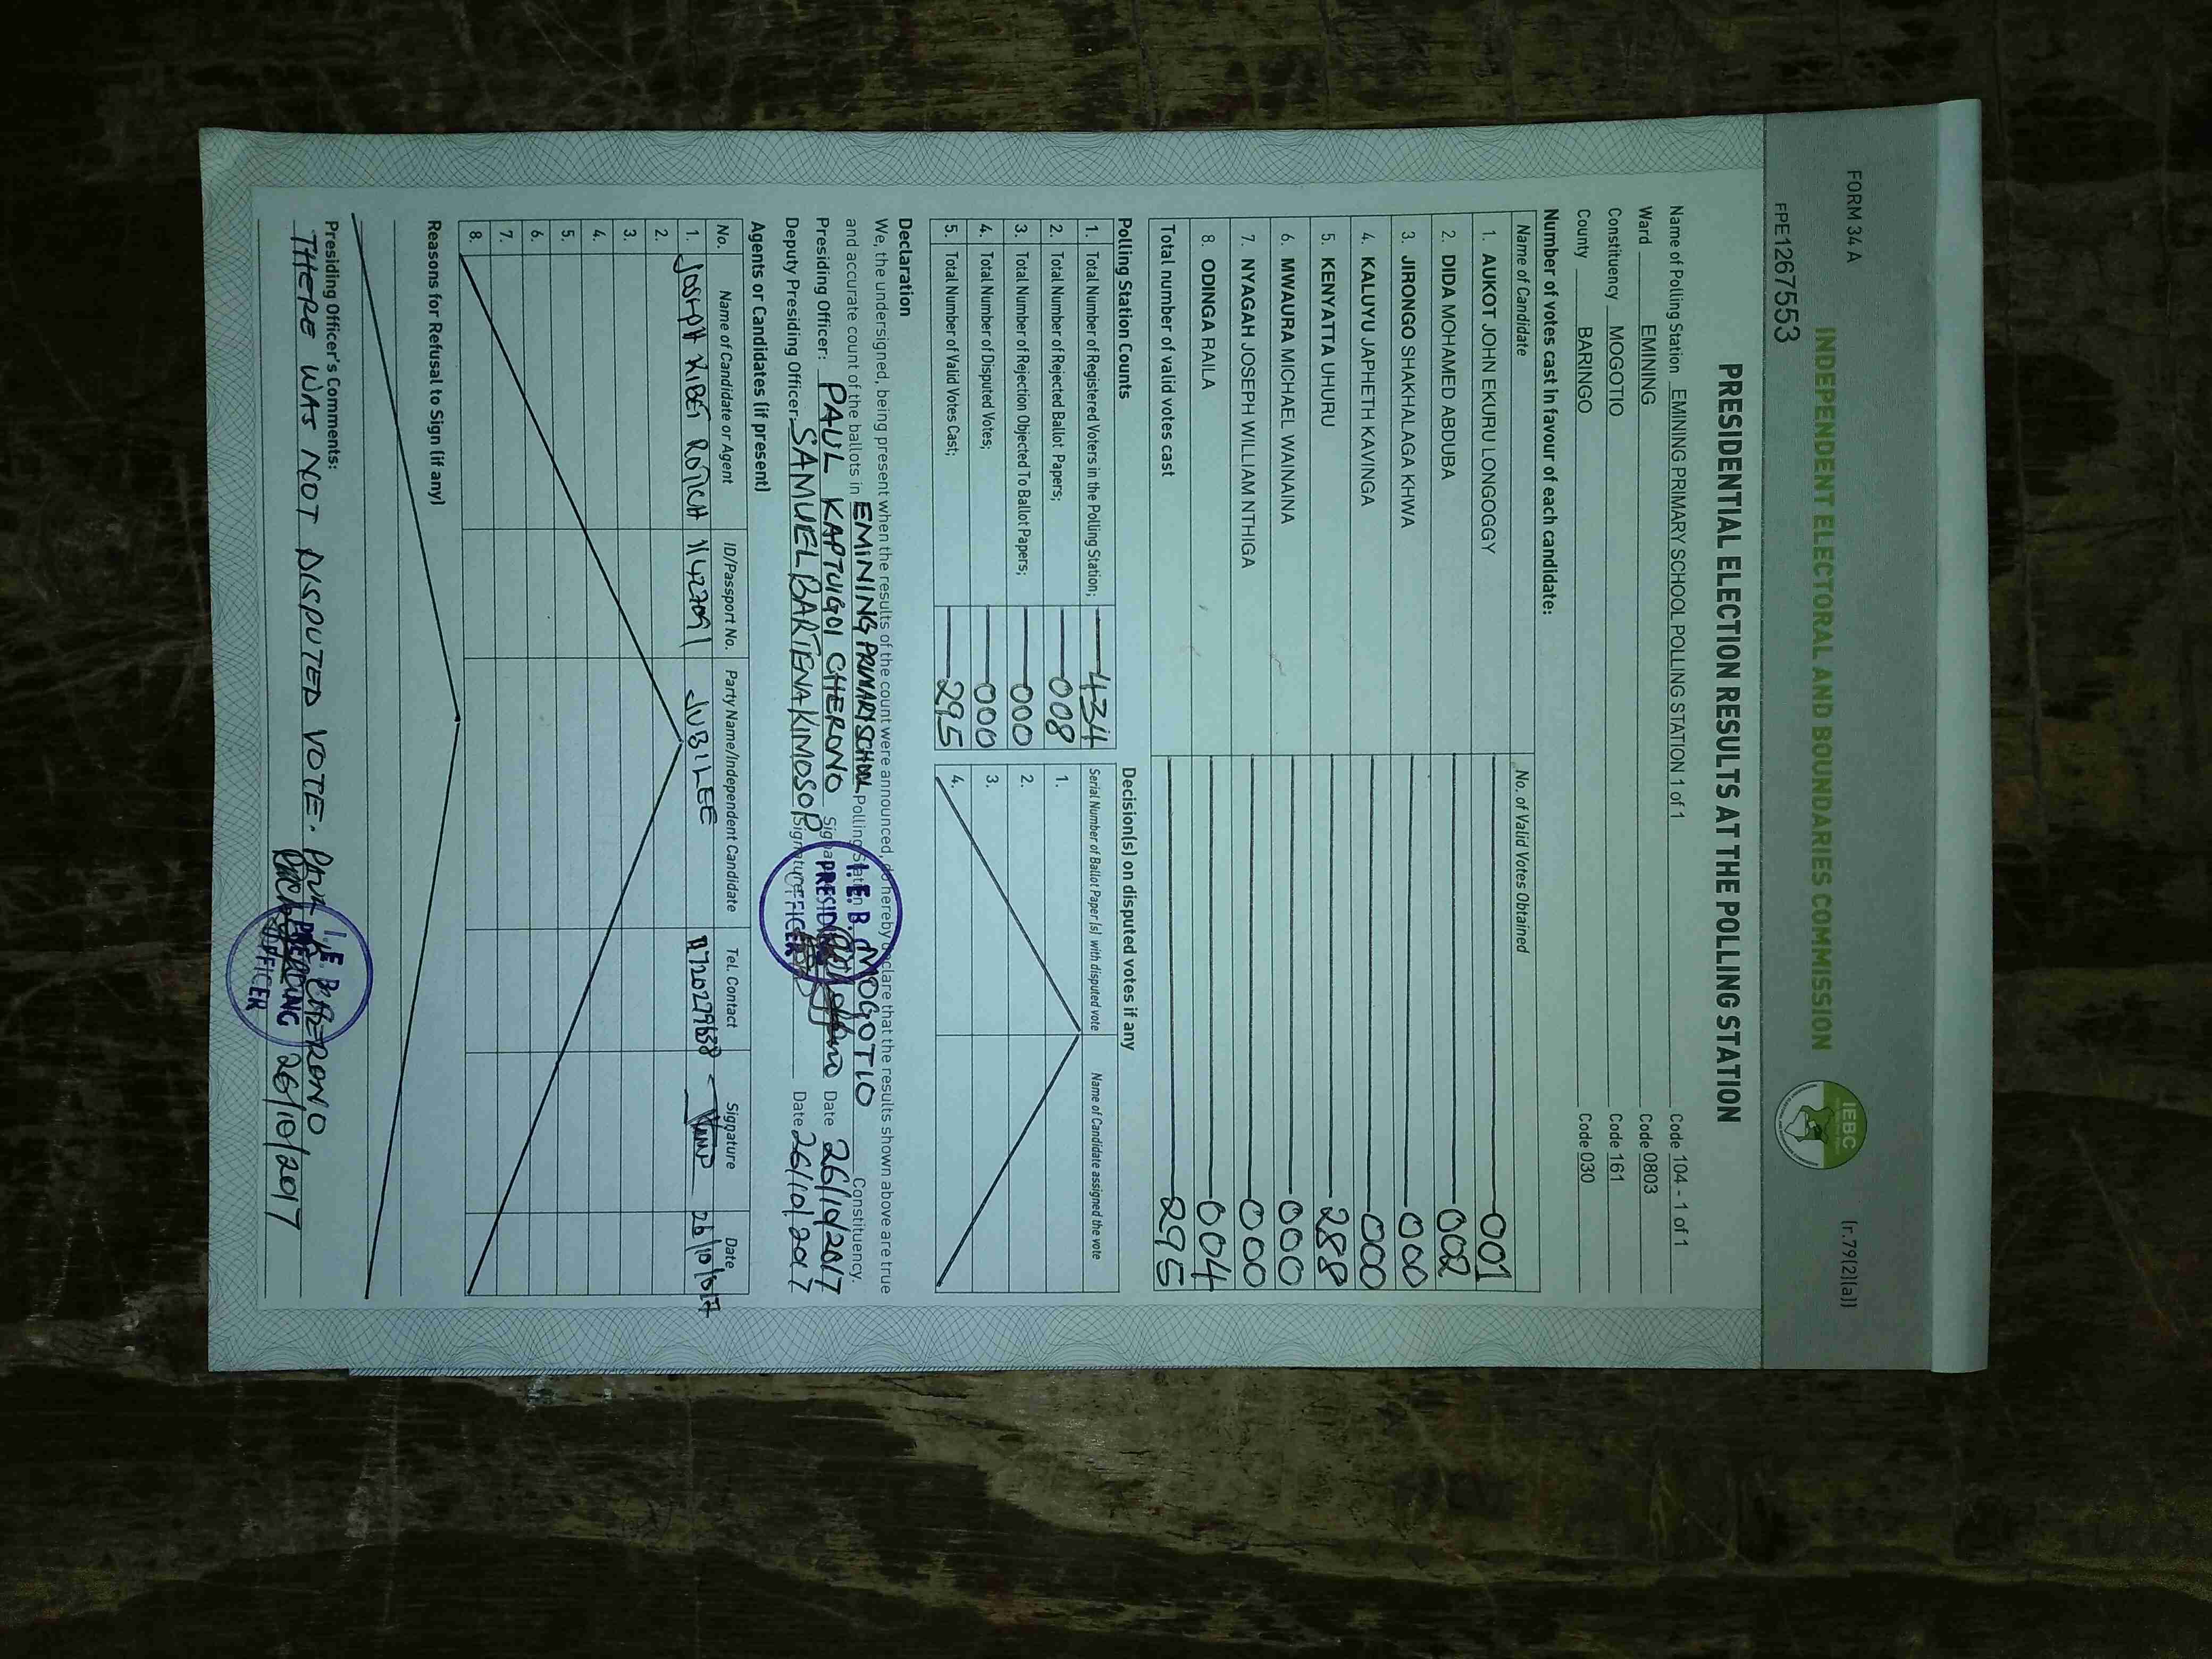 FORM 34 A
(r.79(2)(a))
INDEPENDENT ELECTORAL AND BOUNDARIES COMMISSION
IEBC
FPE1267553
PRESIDENTIAL ELECTION RESULTS AT THE POLLING STATION
Name of Polling Station EMINING PRIMARY SCHOOL POLLING STATION 1 of 1 Code 104 - 1 of 1
Ward EMINING Code 0803
Constituency MOGOTIO Code 161
County BARINGO Code 030
Number of votes cast in favour of each candidate:
Name of Candidate No. of Valid Votes Obtained
1. AUKOT JOHN EKURU LONGOGGY 001
2. DIDA MOHAMED ABDUBA 002
3. JIRONGO SHAKHALAGA KHWA 000
4. KALUYU JAPHETH KAVINGA 000
5. KENYATTA UHURU 288
6. MWAURA MICHAEL WAINAINA 000
7. NYAGAH JOSEPH WILLIAM NTHIGA 000
8. ODINGA RAILA 004
Total number of valid votes cast 295
Polling Station Counts
1. Total Number of Registered Voters in the Polling Station; 434
2. Total Number of Rejected Ballot Papers; 008
3. Total Number of Rejection Objected To Ballot Papers; 000
4. Total Number of Disputed Votes; 000
5. Total Number of Valid Votes Cast; 295
Decision(s) on disputed votes if any
Serial Number of Ballot Paper (s) with disputed vote Name of Candidate assigned the vote
1.
2.
3.
4.
Declaration
We, the undersigned, being present when the results of the count were announced, do hereby declare that the results shown above are true
and accurate count of the ballots in EMINING PRIMARY SCHOOL Polling Station MOGOTIO Constituency.
Presiding Officer: PAUL KAPTUIGOI CHERONO Signature Date 26/10/2017
Deputy Presiding Officer: SAMUEL BARTENA KIMOSOP Signature Date 26/10/2017
I. E. B. C
PRESIDING
OFFICER
Agents or Candidates (if present)
No. Name of Candidate or Agent ID/Passport No. Party Name/Independent Candidate Tel. Contact Signature Date
1. JOSEPH KIBET ROTICH 11427091 JUBILEE 0720279638 26/10/017
2.
3.
4.
5.
6.
7.
8.
Reasons for Refusal to Sign (if any)
Presiding Officer's Comments:
THERE WAS NOT DISPUTED VOTE. PAUL K. CHERONO
26/10/2017
I. E. B. C
PRESIDING
OFFICER